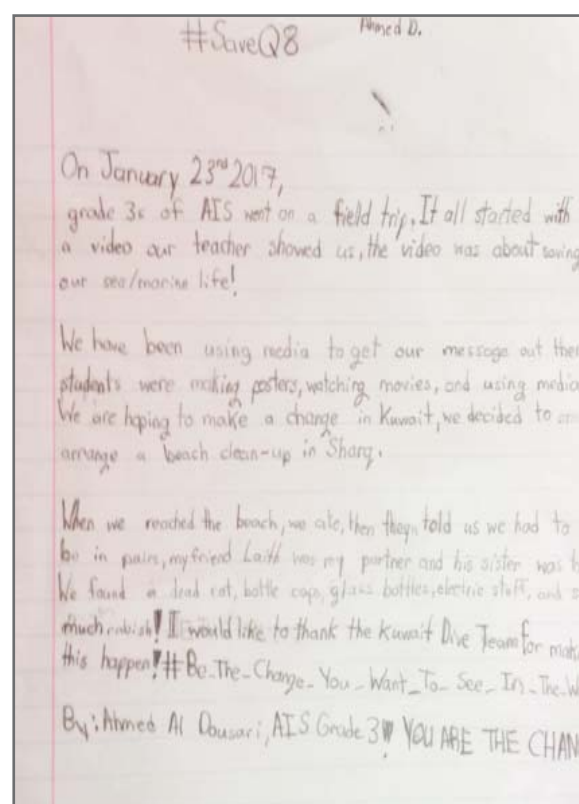 #SaveQ8
Ahmed D.
On January 23rd 2017,
grade 3s of AIS went on a field trip. It all started with
a video our teacher showed us, the video was about saving
our sea/marine life!
We have been using media to get our message out ther
students were making posters, watching movies, and using media
We are hoping to make a change in Kuwait, we decided to
arrange a beach clean-up in Sharq.
When we reached the beach, we ate, then they told us we had to
be in pairs, my friend Laith was my partner and his sister was
We found a dead cat, bottle caps, glass bottles, electric stuff, and
much rubish! I would like to thank the Kuwait Dive Team for mak
this happen! #Be_The_Change_You_Want_To_See_In_The_W
By: Ahmed Al Dousari, AIS Grade 3 YOU ARE THE CHAN